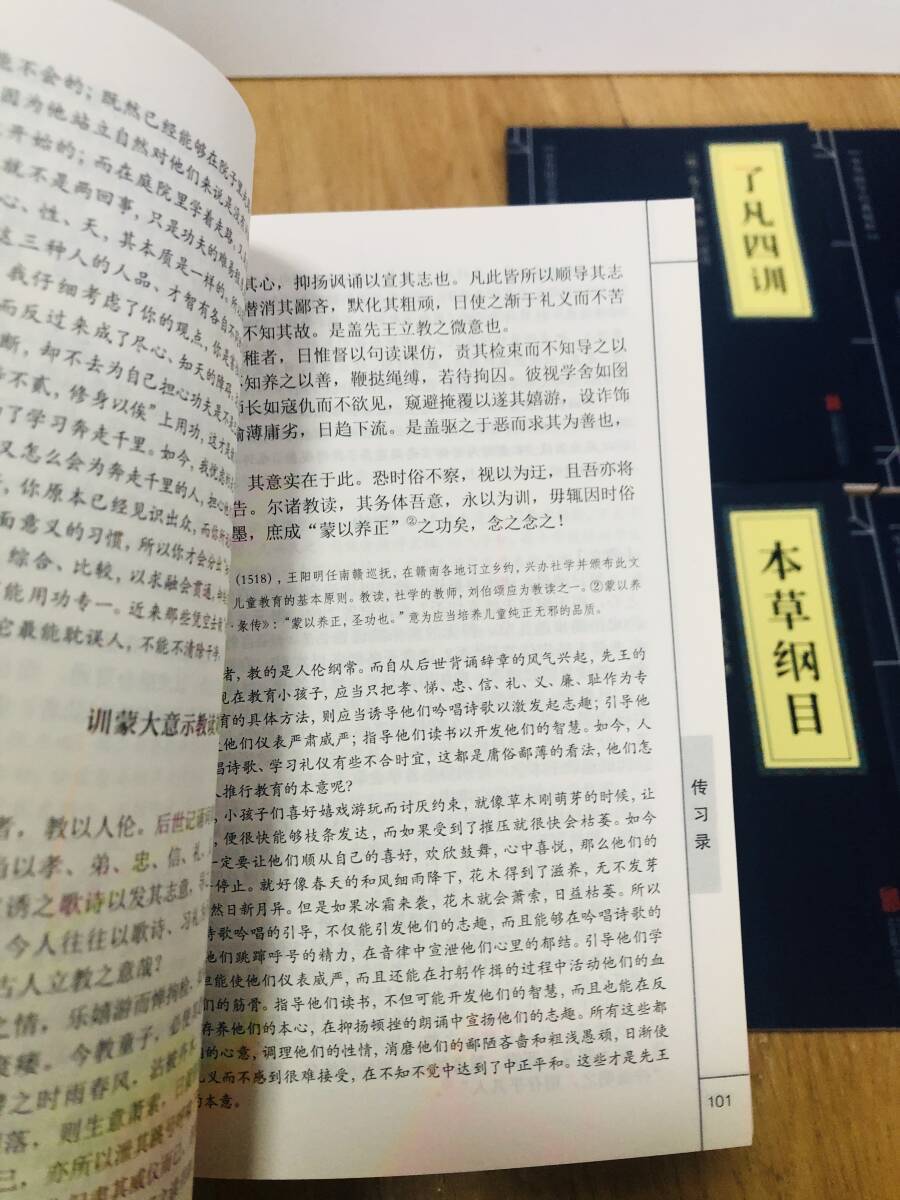 能不会的；既然已经能够在院子里
因为他站立自然对他们来说是没有
开始的；而在庭院里学着走路，
就不是两回事，只是功夫的难易
心、性、天，其本质是一样的。所
这三种人的人品、才智有各自不
我仔细考虑了你的观点，你是
而反过来成了尽心、知天的障碍，
断，却不去为自己担心功夫是不
不贰，修身以俟”上用功，这才是
了学习奔走千里。如今，我
又怎么会为奔走千里的人，担心他
，你原本已经见识出众，而你所
面意义的习惯，所以你才会分出
综合、比较，以求融会贯通，
能用功专一。近来那些凭空去
它最能耽误人，不能不清除干净。
训蒙大意示教读
者，教以人伦。后世记诵
当以孝、弟、忠、信、礼、
诱之歌诗以发其志意，
今人往往以歌诗、习礼为
古人立教之意哉？
之情，乐嬉游而惮拘检，
衰痿。今教童子，必使其
之时雨春风，沾被卉木，
落，则生意萧索，日就
已，亦所以泄其跳号呼啸
其心，抑扬讽诵以宣其志也。凡此皆所以顺导其志
潜消其鄙吝，默化其粗顽，日使之渐于礼义而不苦
不知其故。是盖先王立教之微意也。
稚者，日惟督以句读课仿，责其检束而不知导之以
知养之以善，鞭挞绳缚，若待拘囚。彼视学舍如图
师长如寇仇而不欲见，窥避掩覆以遂其嬉游，设诈饰
偷薄庸劣，日趋下流。是盖驱之于恶而求其为善也，
其意实在于此。恐时俗不察，视以为迂，且吾亦将
告。尔诸教读，其务体吾意，永以为训，毋辄因时俗
墨，庶成“蒙以养正”②之功矣，念之念之！
（1518），王阳明任南赣巡抚，在赣南各地订立乡约，兴办社学并颁布此文
儿童教育的基本原则。教读，社学的教师，刘伯颂应为教读之一。②蒙以养
·彖传》：“蒙以养正，圣功也。”意为应当培养儿童纯正无邪的品质。
者，教的是人伦纲常。而自从后世背诵辞章的风气兴起，先王的
现在教育小孩子，应当只把孝、悌、忠、信、礼、义、廉、耻作为专
育的具体方法，则应当诱导他们吟唱诗歌以激发起志趣；引导他
使他们仪表严肃威严；指导他们读书以开发他们的智慧。如今，人
唱诗歌、学习礼仪有些不合时宜，这都是庸俗鄙薄的看法，他们怎
人推行教育的本意呢？
，小孩子们喜好嬉戏游玩而讨厌约束，就像草木刚萌芽的时候，让
，便很快能够枝条发达，而如果受到了摧压就很快会枯萎。如今
一定要让他们顺从自己的喜好，欢欣鼓舞，心中喜悦，那么他们的
停止。就好像春天的和风细雨降下，花木得到了滋养，无不发芽
然日新月异。但是如果冰霜来袭，花木就会萧索，日益枯萎。所以
诗歌吟唱的引导，不仅能引发他们的志趣，而且能够在吟唱诗歌的
他们跳蹿呼号的精力，在音律中宣泄他们心里的郁结。引导他们学
但能使他们仪表威严，而且还能在打躬作揖的过程中活动他们的血
们的筋骨。指导他们读书，不但可能开发他们的智慧，而且也能在反
存养他们的本心，在抑扬顿挫的朗诵中宣扬他们的志趣。所有这些都
的心意，调理他们的性情，消磨他们的鄙陋吝啬和粗浅愚顽，日渐使
礼义而不感到很难接受，在不知不觉中达到了中正平和。这些才是先王
的本意。
传习录
101
了凡四训
本草纲目